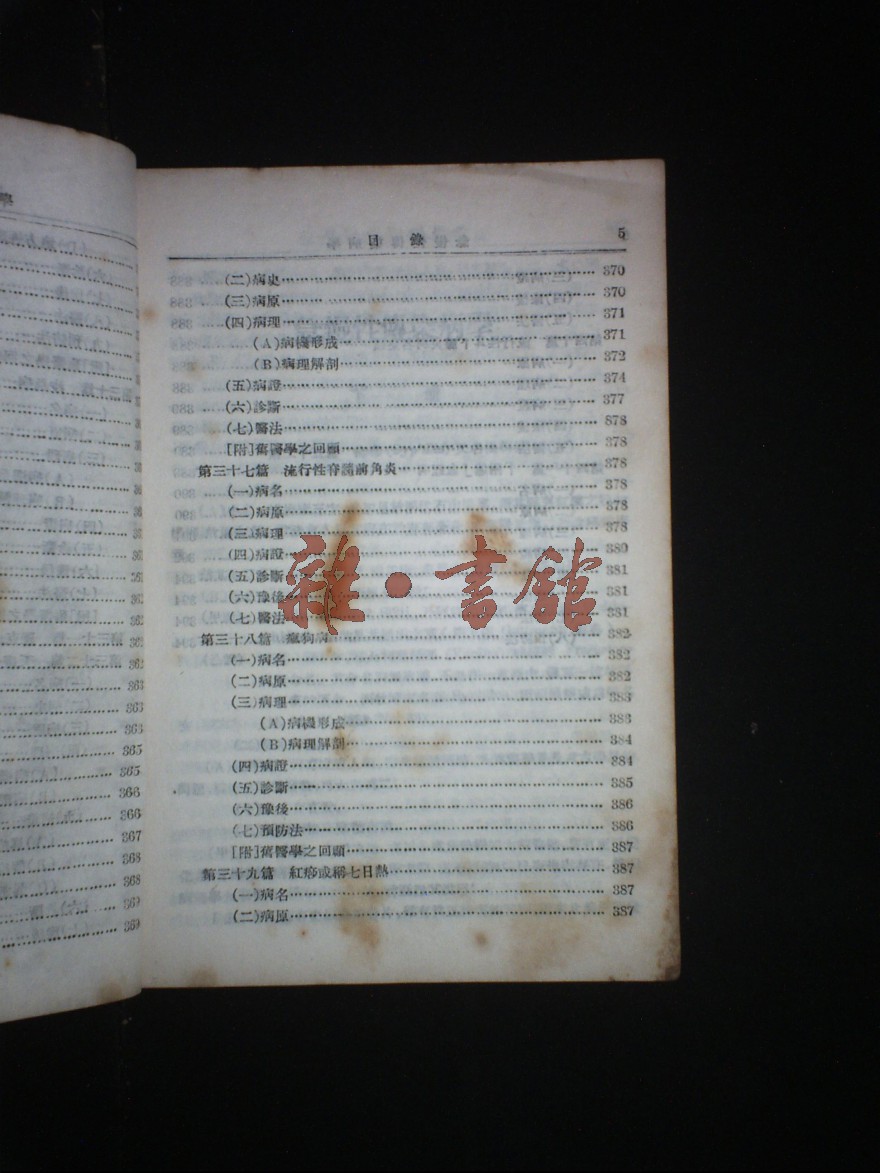 學
361
362
363
363
363
365
365
366
366
367
368
368
369
369
目錄 5
(二)病史 370
(三)病原 370
(四)病理 371
(A)病機形成 371
(B)病理解剖 372
(五)病證 374
(六)診斷 377
(七)醫法 378
[附]舊醫學之回顧 378
第三十七篇 流行性脊髓前角炎 378
(一)病名 378
(二)病原 378
(三)病理 378
(四)病證 380
(五)診斷 381
(六)豫後 381
(七)醫法 381
第三十八篇 瘋狗病 382
(一)病名 382
(二)病原 382
(三)病理 383
(A)病機形成 383
(B)病理解剖 384
(四)病證 384
(五)診斷 385
(六)豫後 386
(七)預防法 386
[附]舊醫學之回顧 387
第三十九篇 紅痧或稱七日熱 387
(一)病名 387
(二)病原 387
雜·書館